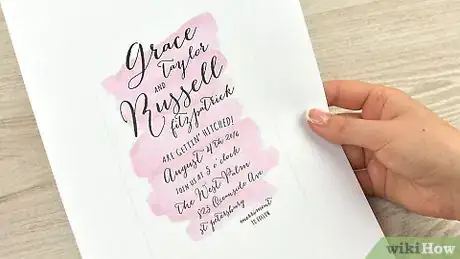 Grace
Taylor
AND
Russell
fitzpatrick
ARE GETTIN' HITCHED!
August 4th 2016
JOIN US AT 5 o'clock
The West Palm
823 Oceanside Ave
st petersburg
merriment
TO FOLLOW
wikiHow